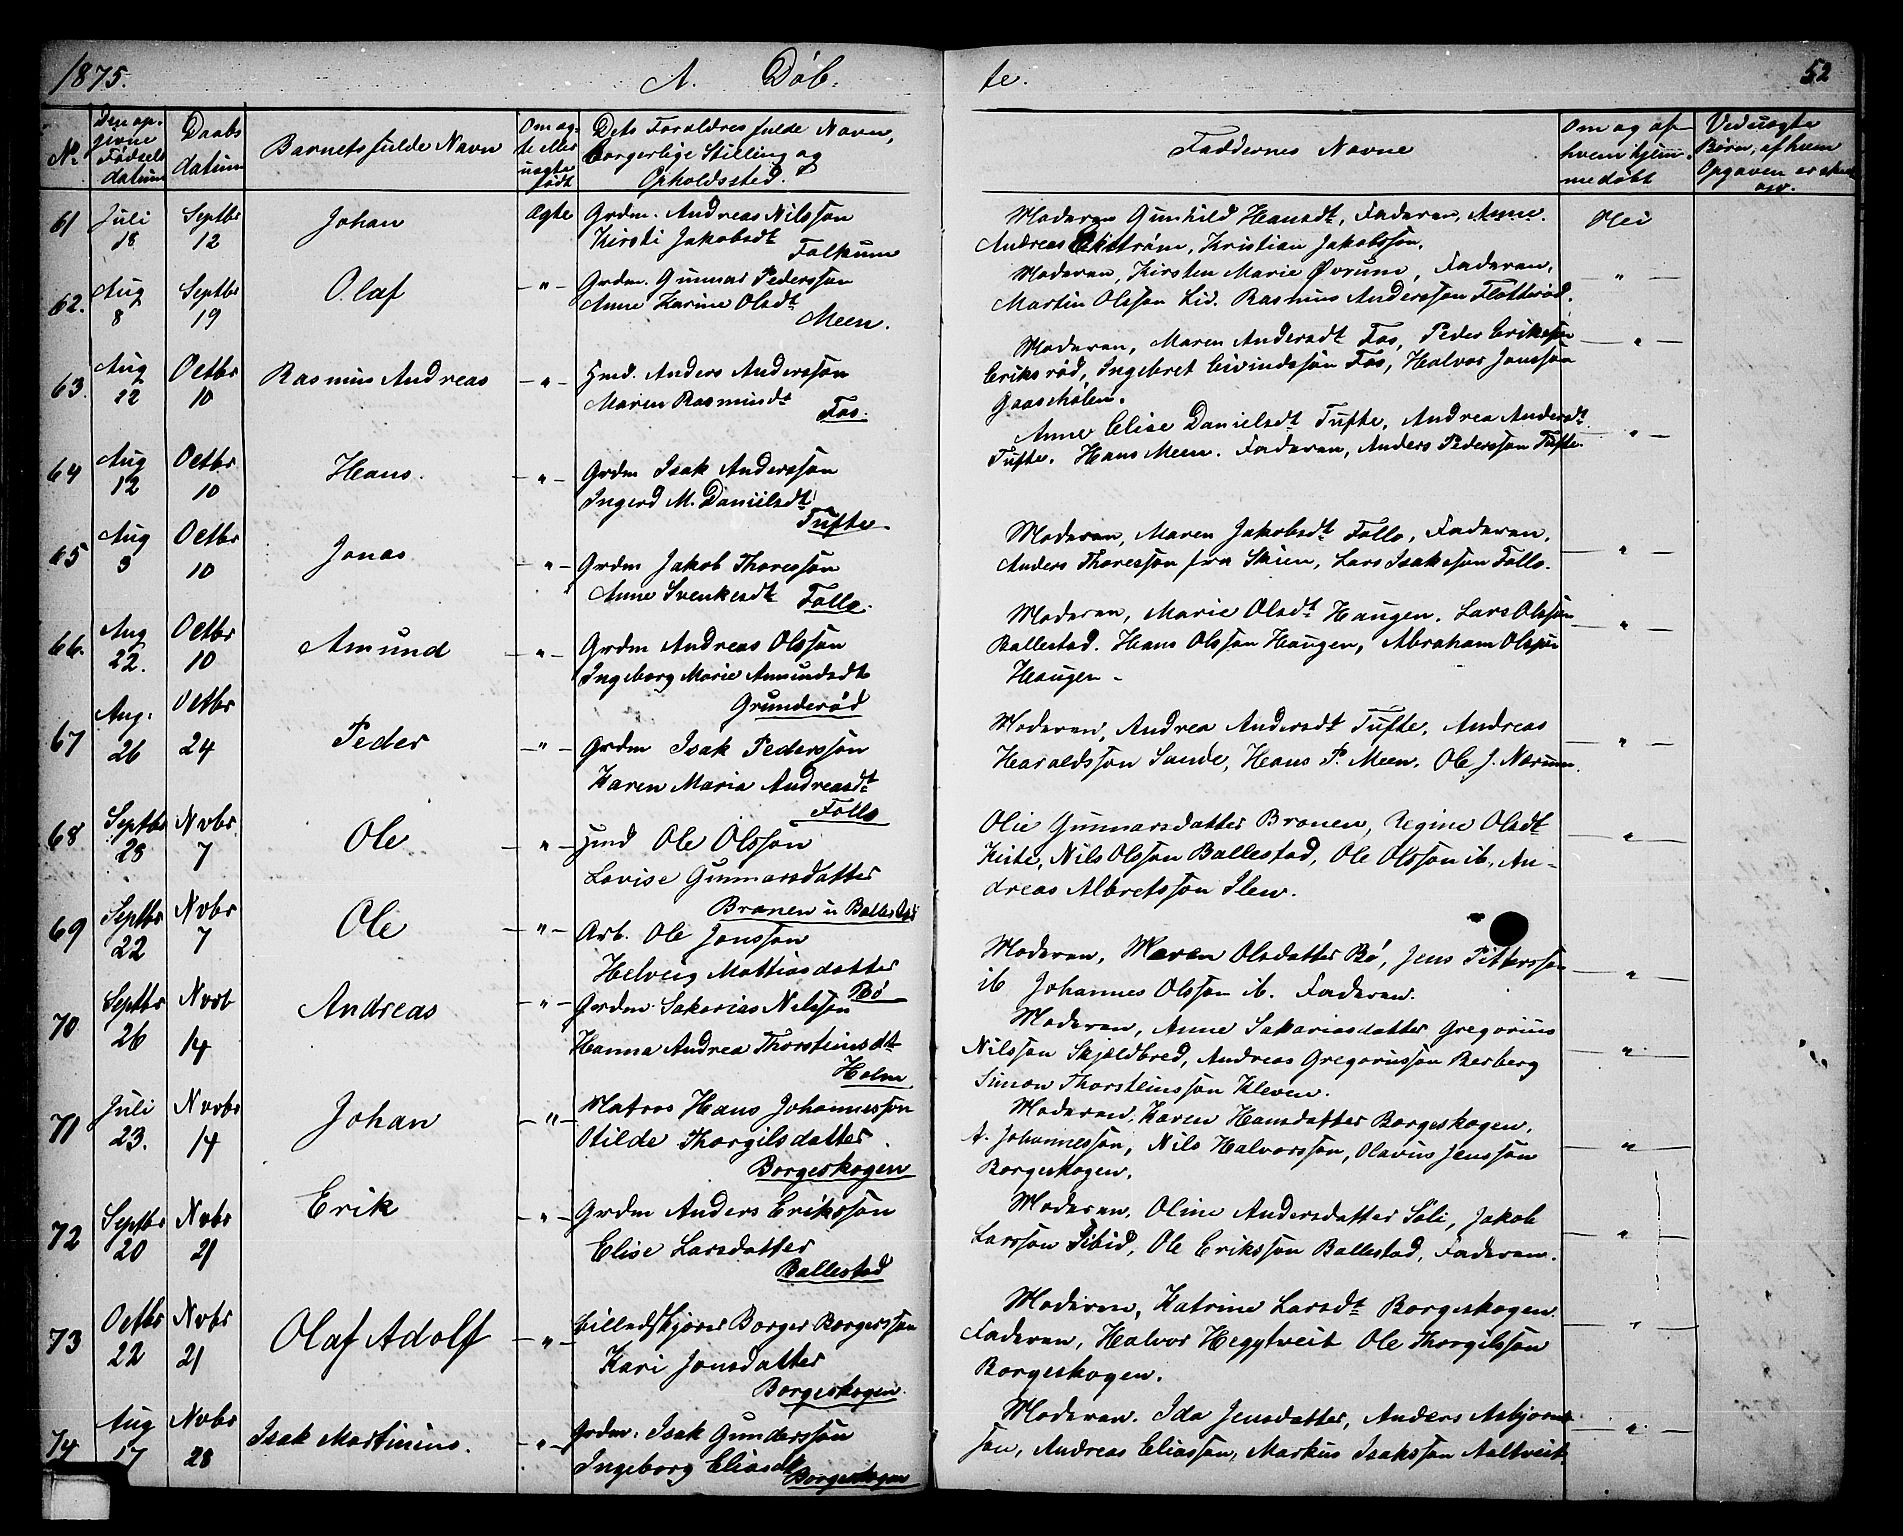 1875. A. Døb-
te. 52
No.
Den op-
givne
Fødsels
datum
Daabs
datum
Barnets fulde Navn
Om æg-
te eller
uægte
født
Dets Foræeldres fulde Navn,
borgerlige Stilling og
Opholdssted.
Faddernes Navne
Om og af
hvem hjem-
medøbt
Ved uægte
Børn, af hvem
Opgaven er
61 Juli 18 Septbr 12 Johan Ægte Grdm. Andreas Nilsson
Kirsti Jakobsdt
Falkum
Moderen Gunhild Hansdt, Faderen, Anne.
Andreas Ekstrøm, Kristian Jakobsson.
Nei
62. Aug 8 Septbr 19 Olaf -"- Grdm. Gunnar Pedersson
Anne Karine Olsdt
Meen.
Moderen, Kirsten Marie Øvrum, Faderen,
Martin Olsson Lid. Rasmus Andersson Flotterød.
-"-
63. Aug 22 Octbr 10 Rasmus Andreas -"- Hmd. Anders Andersson
Maren Rasmusdt
Fos.
Moderen, Maren Andersdt Fos, Peder Eriksson
Eriksrød, Ingebret Eivindsson Fos, Halvor Jonsson
Gaasehølen.
-"-
64 Aug 12 Octbr 10 Hans. -"- Grdm Isak Andersson
Ingerd M. Danielsdt
Tufte
Anne Elise Danielsdt Tufte, Andrea Andersdt
Tufte. Hans Meen. Faderen, Anders Pedersson Tufte.
-"-
65 Aug 3 Octbr 10 Jonas -"- Grdm Jakob Thoresson
Anne Svenkesdt Follo.
Moderen, Maren Jakobsdt Follo, Faderen,
Anders Thoresson fra Skien, Lars Isaksson Follo.
-"-
66. Aug 22. Octbr 10 Amund -"- Grdm Andreas Olsson
Ingeborg Marie Amundsdt
Grunderød
Moderen, Marie Olsdt Haugen. Lars Olsson
Ballestad. Hans Olsson Haugen, Abraham Olsson
Haugen -
-"-
67 Aug. 26 Octbr 24 Peder -"- Grdm Isak Pedersson
Karen Maria Andreasdt
Follo
Moderen, Andrea Andersdt Tufte, Andreas
Haraldsson Sande, Hans P. Meen. Ole J. Nærum.
-"-
68 Septbr 28 Novbr 7 Ole -"- Hmd Ole Olsson
Lovise Gunnarsdatter
Branen u Ballestad
Olie Gunnarsdatter Branen, Regine Olsdt
Kiste, Nils Olsson Ballestad, Ole Olsson ib. An-
dreas Albretsson Ilew.
-"-
69 Septbr 22 Novbr 7 Ole -"- Arb. Ole Jonsson
Helveig Mattiasdatter
Bø
Moderen, Maren Olsdatter Bø, Jens Pettersson
ib Johannes Olsson ib. Faderen.
-"-
70 Septbr 26 Novb 14 Andreas -"- Grdm. Sakarias Nilsson
Hanna Andrea Thorsteinsdt
Holm
Moderen, Anne Sakariasdatter Gregorius
Nilsson Skjeldbred, Andreas Gregoriusson Berberg
Simon Thorsteinsson Kleven.
-"-
71 Juli 23. Novbr 14 Johan -"- Matros Hans Johannesson
Otilde Thorgilsdatter.
Borgeskogen
Moderen, Karen Hansdatter Borgeskogen,
A. Johannesson, Nils Halvorsson, Olavus Jensson
Borgeskogen.
-"-
72 Septbr 20 Novbr 21 Erik -"- Grdm Anders Eriksson
Elise Larsdatter
Ballestad
Moderen, Oline Andersdatter Soli, Jakob
Larsson Ibid, Ole Eriksson Ballestad, Faderen.
-"-
73 Octbr 22 Novbr 21 Olaf Adolf -"- Billedskjærer Borger Borgersson
Kari Jonsdatter
Borgeskogen.
Moderen, Katrine Larsdt Borgeskogen.
Faderen, Halvor Heggtveit Ole Thorgilsson
Borgeskogen.
-"-
74 Aug 17 Novbr 28 Isak Martinius. -"- Grdm. Isak Gundersson
Ingeborg Eliasdt Borgeskogen
Moderen. Ida Jensdatter, Anders Asbjørns-
son, Andreas Eliasson, Markus Isaksson Aaltveit
-"-